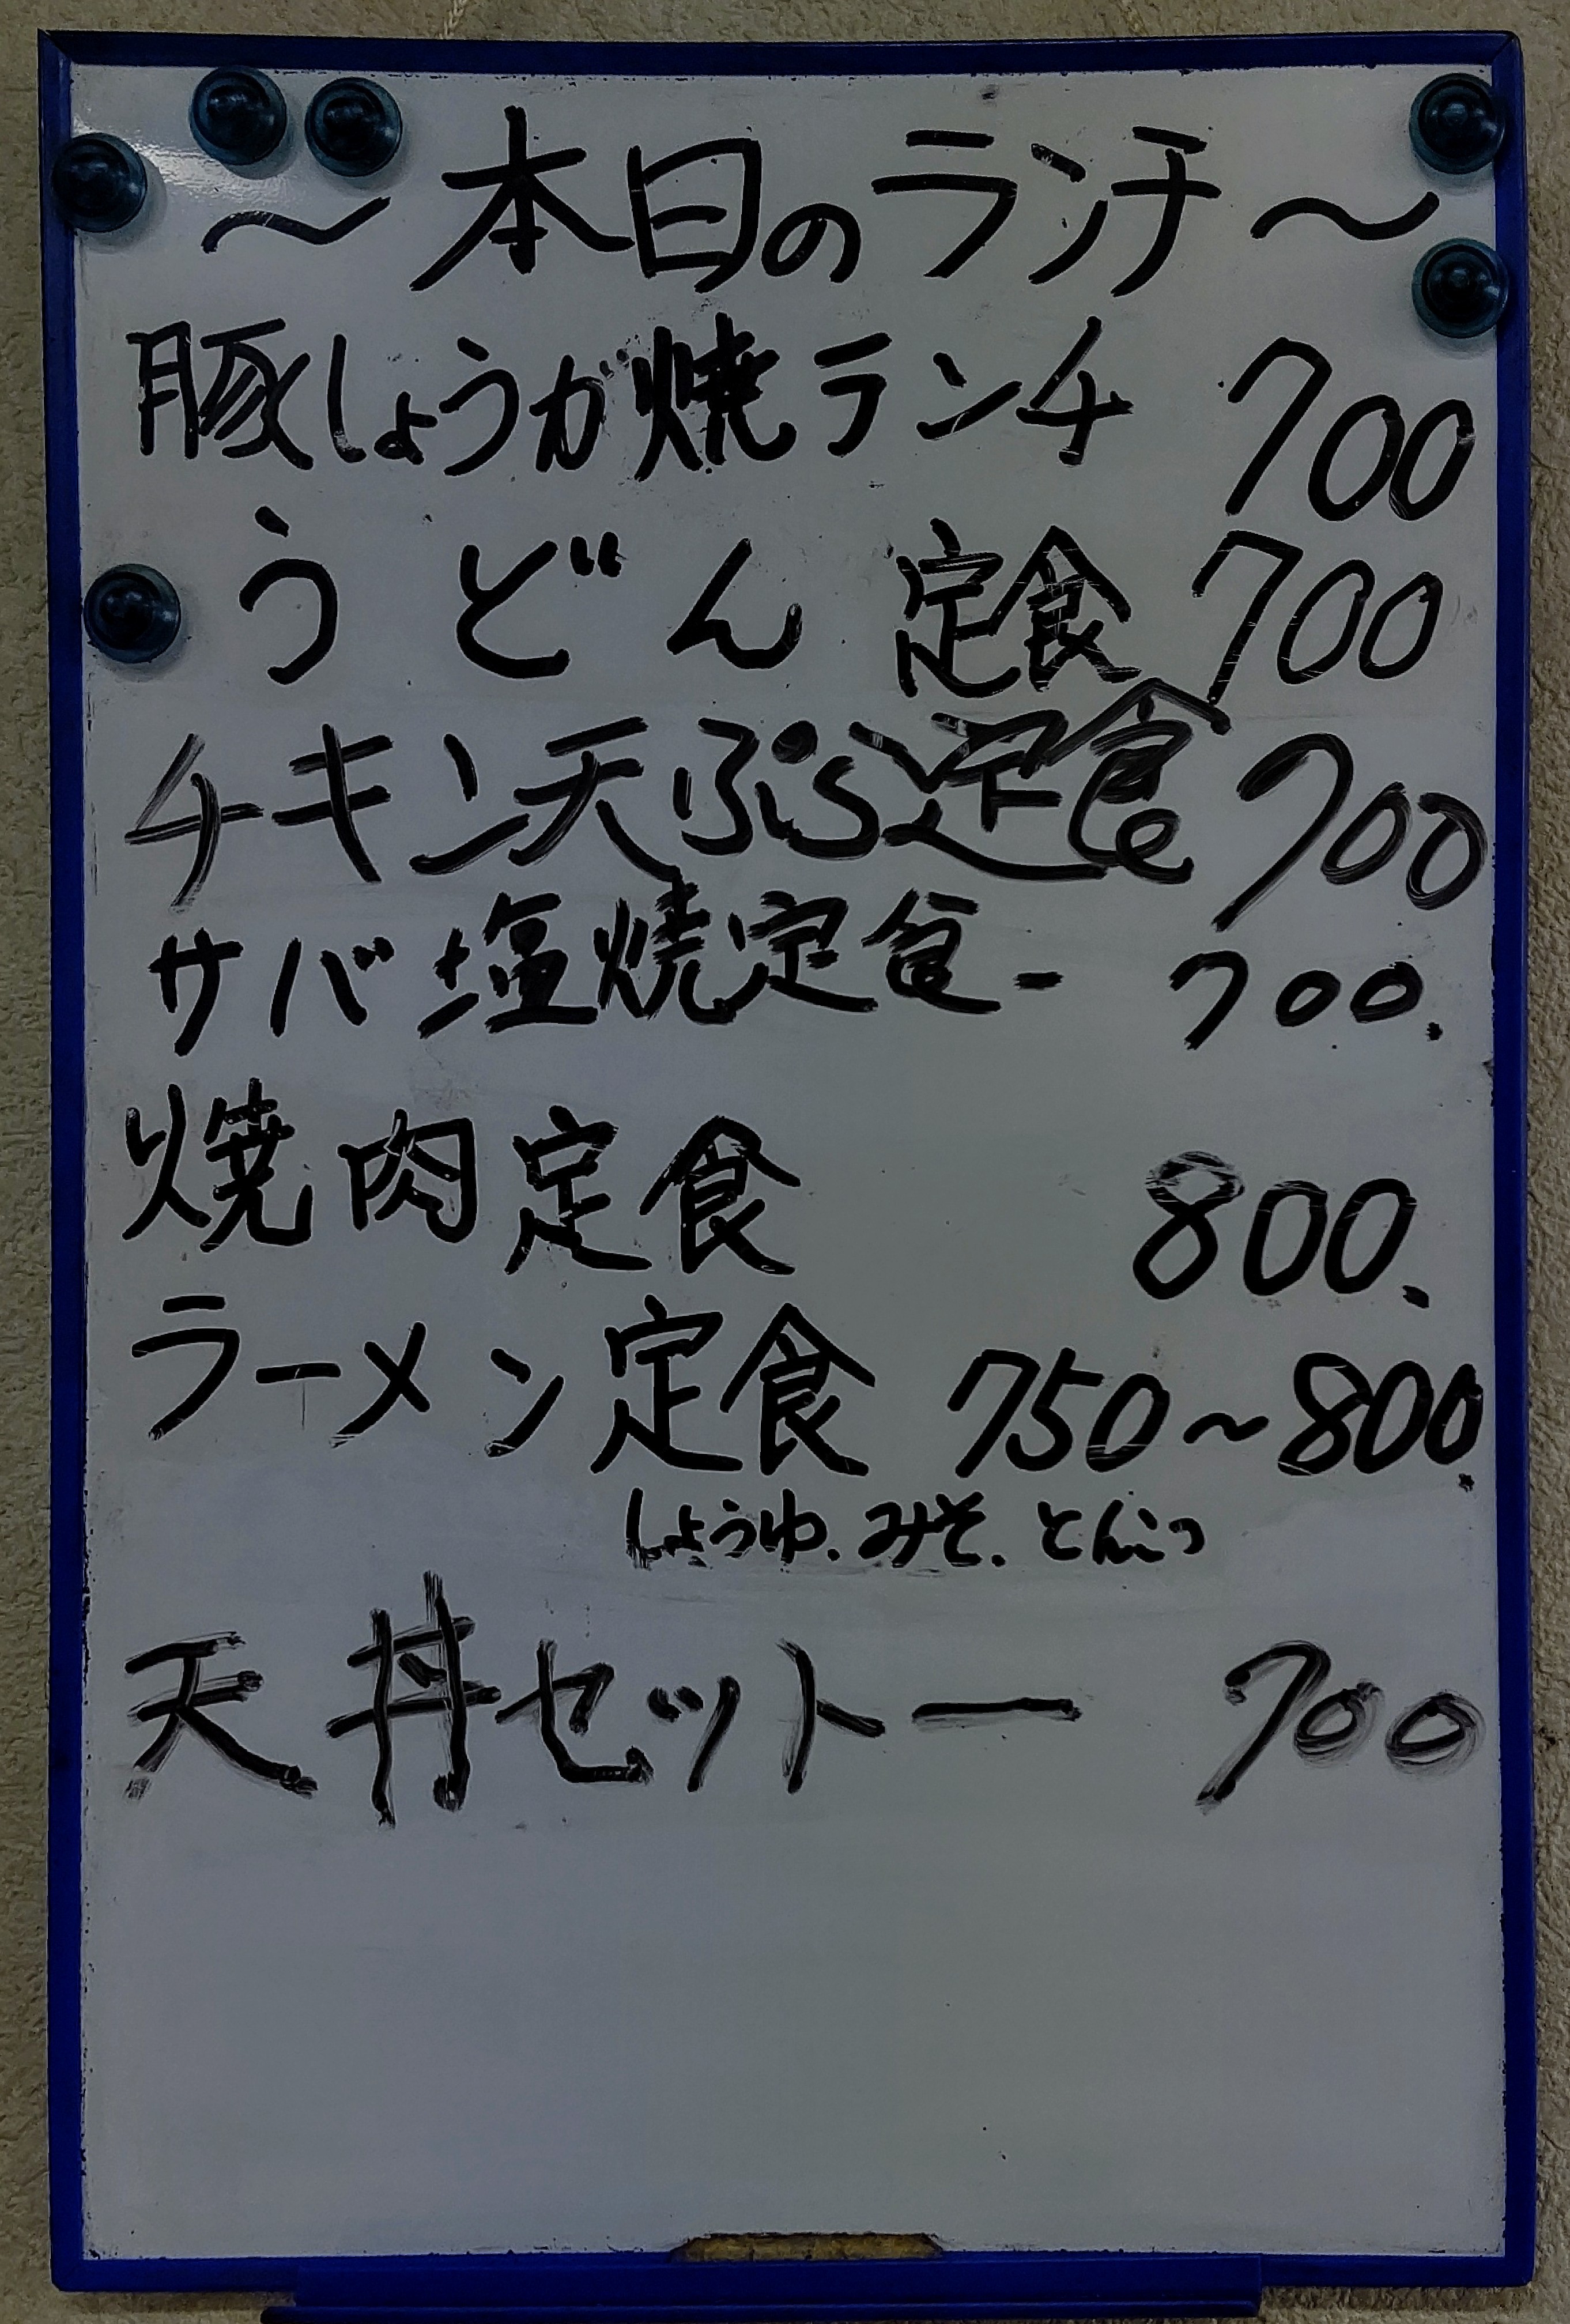 〜本日のランチ〜
豚しょうが焼ランチ 700
うどん定食 700
チキン天ぷら定食 700
サバ塩焼定食- 700.
焼肉定食 800.
ラーメン定食 750〜800.
しょうゆ.みそ.とんこつ
天丼セットー 700